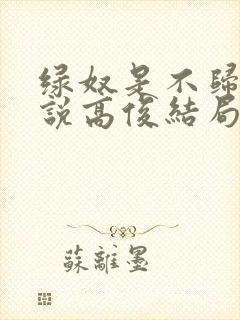 绿奴是不歸
說高俊結局
蘇離墨